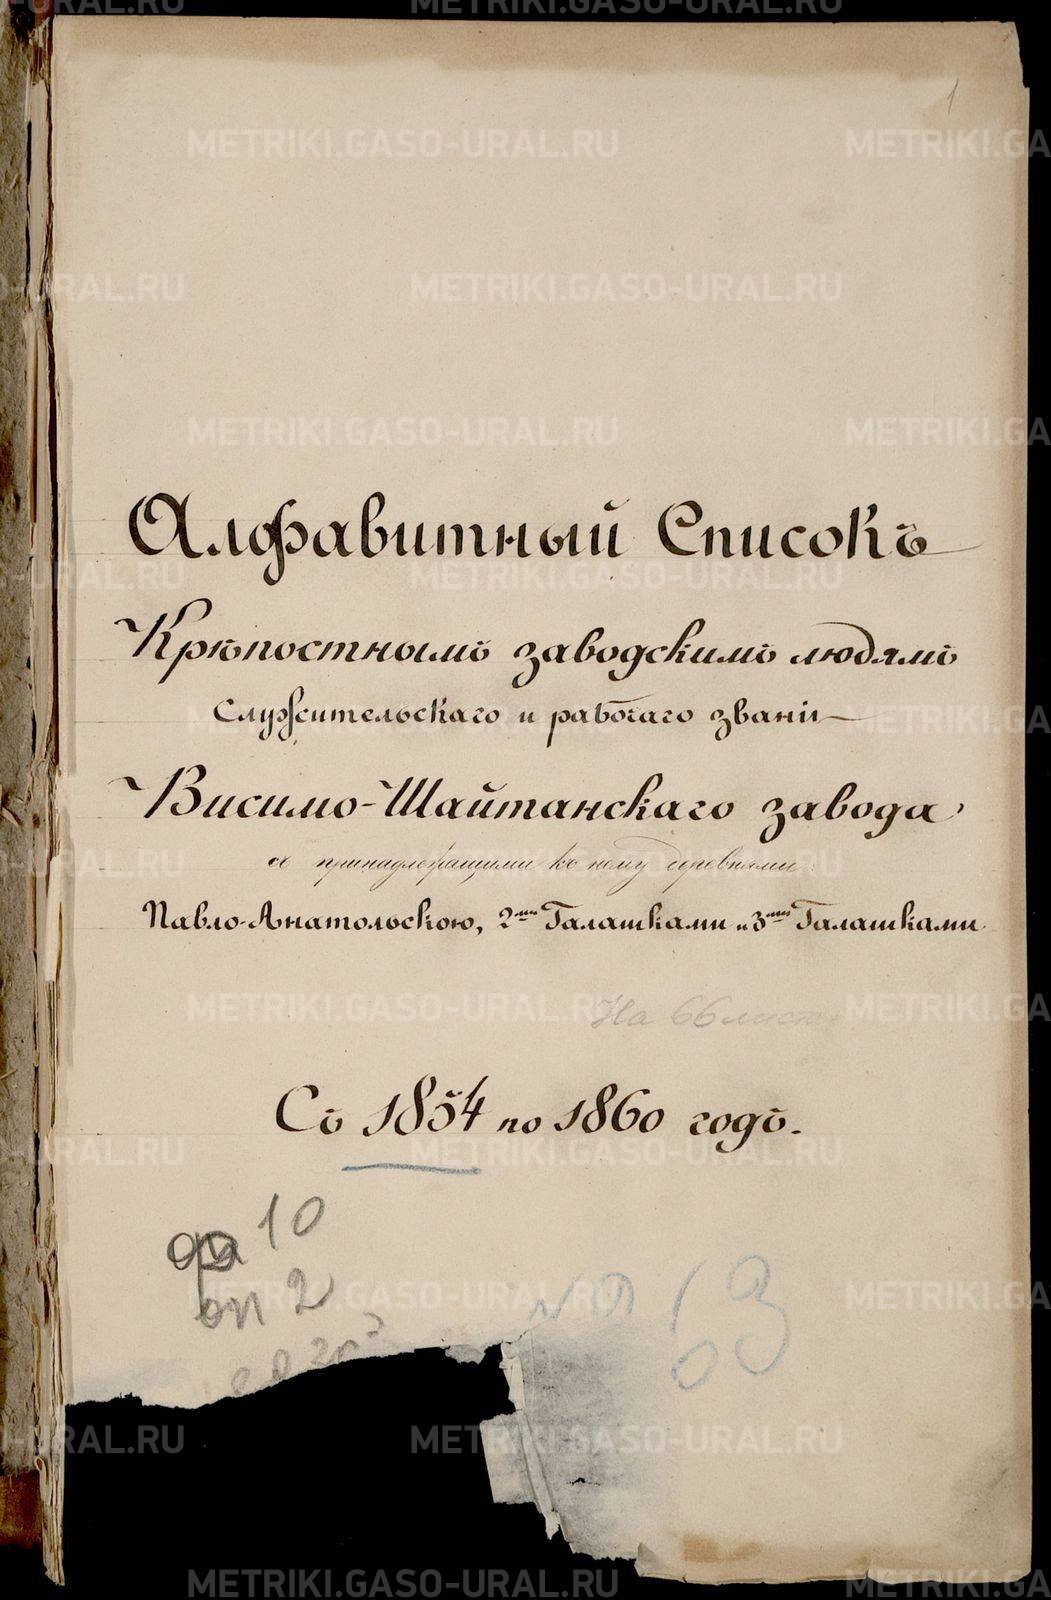 1
Алфавитный Списокъ
Крѣпостнымъ заводскимъ людямъ
служительскаго и рабочаго званія
Висимо-Шайтанскаго завода
съ принадлежащими къ нему деревнями:
Павло-Анатольскою, 2ми Галашками и 3ми Галашками
На 66 листа
Съ 1854 по 1860 годъ.
ф 10
оп 2
63
METRIKI.GASO-URAL.RU